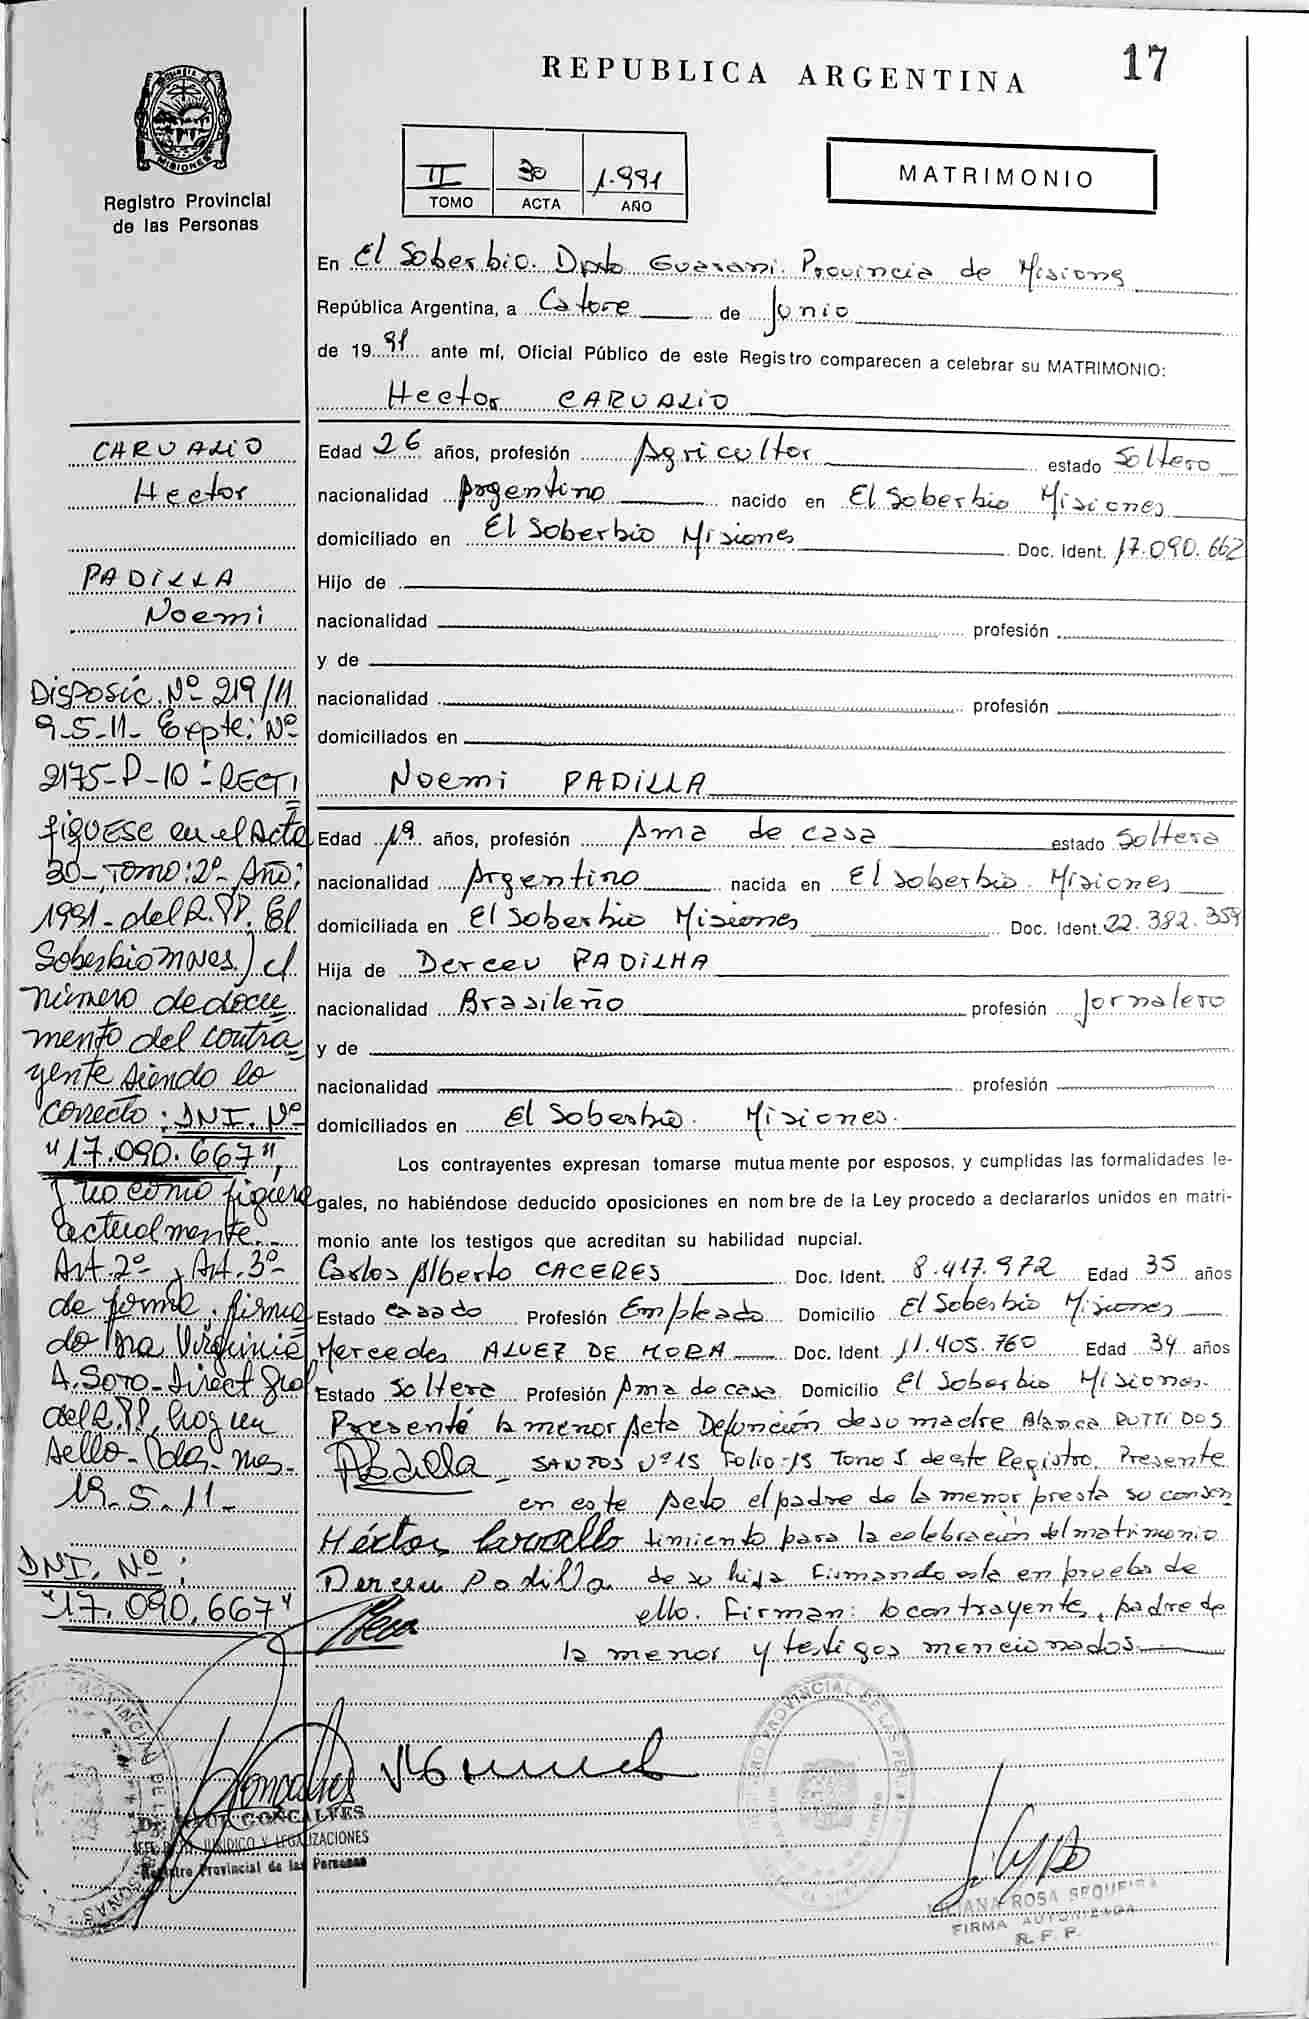 REPUBLICA ARGENTINA
17
MISIONES
Registro Provincial
de las Personas
II 30 1.991
TOMO ACTA AÑO
MATRIMONIO
En El Soberbio. Dpto Guarani. Provincia de Misiones
República Argentina, a Catorce de Junio
de 1991 ante mí, Oficial Público de este Registro comparecen a celebrar su MATRIMONIO:
Hector CARVALIO
Edad 26 años, profesión Agricultor estado Soltero
nacionalidad Argentino nacido en El Soberbio Misiones
domiciliado en El Soberbio Misiones Doc. Ident. 17.090.662
Hijo de
nacionalidad profesión
y de
nacionalidad profesión
domiciliados en
Noemi PADILLA
Edad 19 años, profesión Ama de casa estado Soltera
nacionalidad Argentino nacida en El Soberbio. Misiones
domiciliada en El Soberbio Misiones Doc. Ident. 22.382.359
Hija de Derceu PADILHA
nacionalidad Brasileño profesión Jornalero
y de
nacionalidad profesión
domiciliados en El Soberbio. Misiones.
Los contrayentes expresan tomarse mutuamente por esposos, y cumplidas las formalidades le-
gales, no habiéndose deducido oposiciones en nombre de la Ley procedo a declararlos unidos en matri-
monio ante los testigos que acreditan su habilidad nupcial.
Carlos Alberto CACERES Doc. Ident. 8.417.972 Edad 35 años
Estado casado Profesión Empleado Domicilio El Soberbio Misiones
Mercedes ALVEZ DE MORA Doc. Ident 11.405.760 Edad 34 años
Estado Soltera Profesión Ama de casa Domicilio El Soberbio Misiones.
Presenté la menor Acta Defunción de su madre Blanca DUTTI DOS
Padilla SANTOS Nº15 Folio-15 Tomo I de este Registro. Presente
en este Acto el padre de la menor presta su consen
Héctor Carvallo timiento para la celebración del matrimonio
Derceu Padilla de su hija Firmando esta en prueba de
ello. Firman: lo contrayente, padre de
la menor y testigos mencionados
CARVALIO
Hector
PADILLA
Noemi
Disposic. Nº 219/11
9-5-11- Expte: Nº
2175-P-10- RECTI
fiquese en el Acta
30-, Tomo: 2º- Año:
1991- del R.PP. El
Soberbio Mnes.) el
número de docu
mento del contra
yente siendo lo
correcto: DNI. Nº
"17.090.667",
y no como figure
actualmente.-
Art. 2º y Art. 3º-
de forma. firma
do Dra Virginia
A. Soto- Direct Gral
del R.PP. hay un
sello- Pdas- Mnes-
19-5-11-
DNI. Nº:
"17.090.667"
Goncalves
Dr. RAUL GONCALVES
JEFE DPTO. JURIDICO Y LEGALIZACIONES
Registro Provincial de las Personas
REGISTRO PROVINCIAL DE LAS PERSONAS
LILIANA ROSA SEQUEIRA
FIRMA AUTORIZADA
R. P. P.